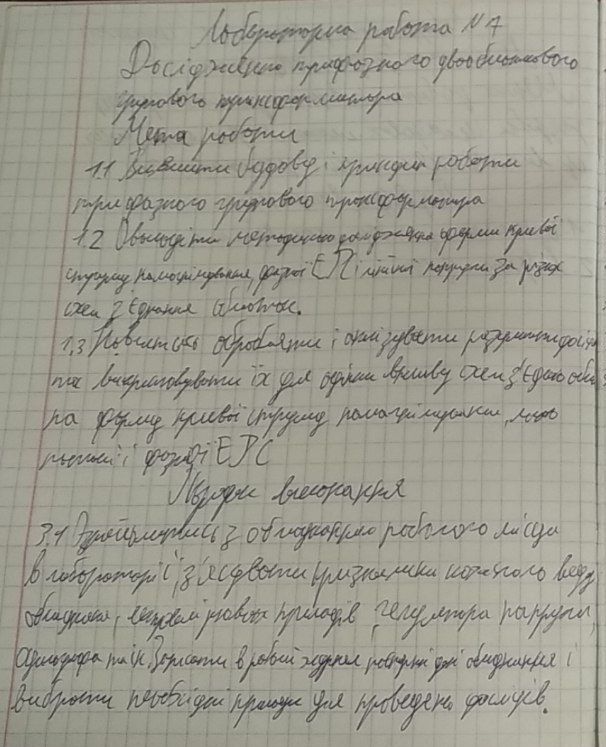 Лабораторна робота №7
Дослідження трифазного двообмоткового
групового трансформатора
Мета роботи
1.1 Вивчити будову і принцип роботи
трифазного групового трансформатора
1.2 Оволодіти методикою дослідження форми кривої
струму намагнічування, фазної ЕРС і лінійної напруги за різних
схем з'єднання обмоток.
1.3 Навчитись обробляти і аналізувати результати
та використовувати їх для оцінки впливу схем з'єднань
на форму кривої струму намагнічування,
і фазної ЕРС
Порядок виконання
3.1 Ознайомитись з обладнанням робочого місця
в лабораторії, з'ясувати призначення кожного виду
обладнання, вимірювальних приладів, регулятора напруги,
Записати в робочий журнал паспортні дані обладнання і
вибрати необхідні прилади для проведення дослідів.